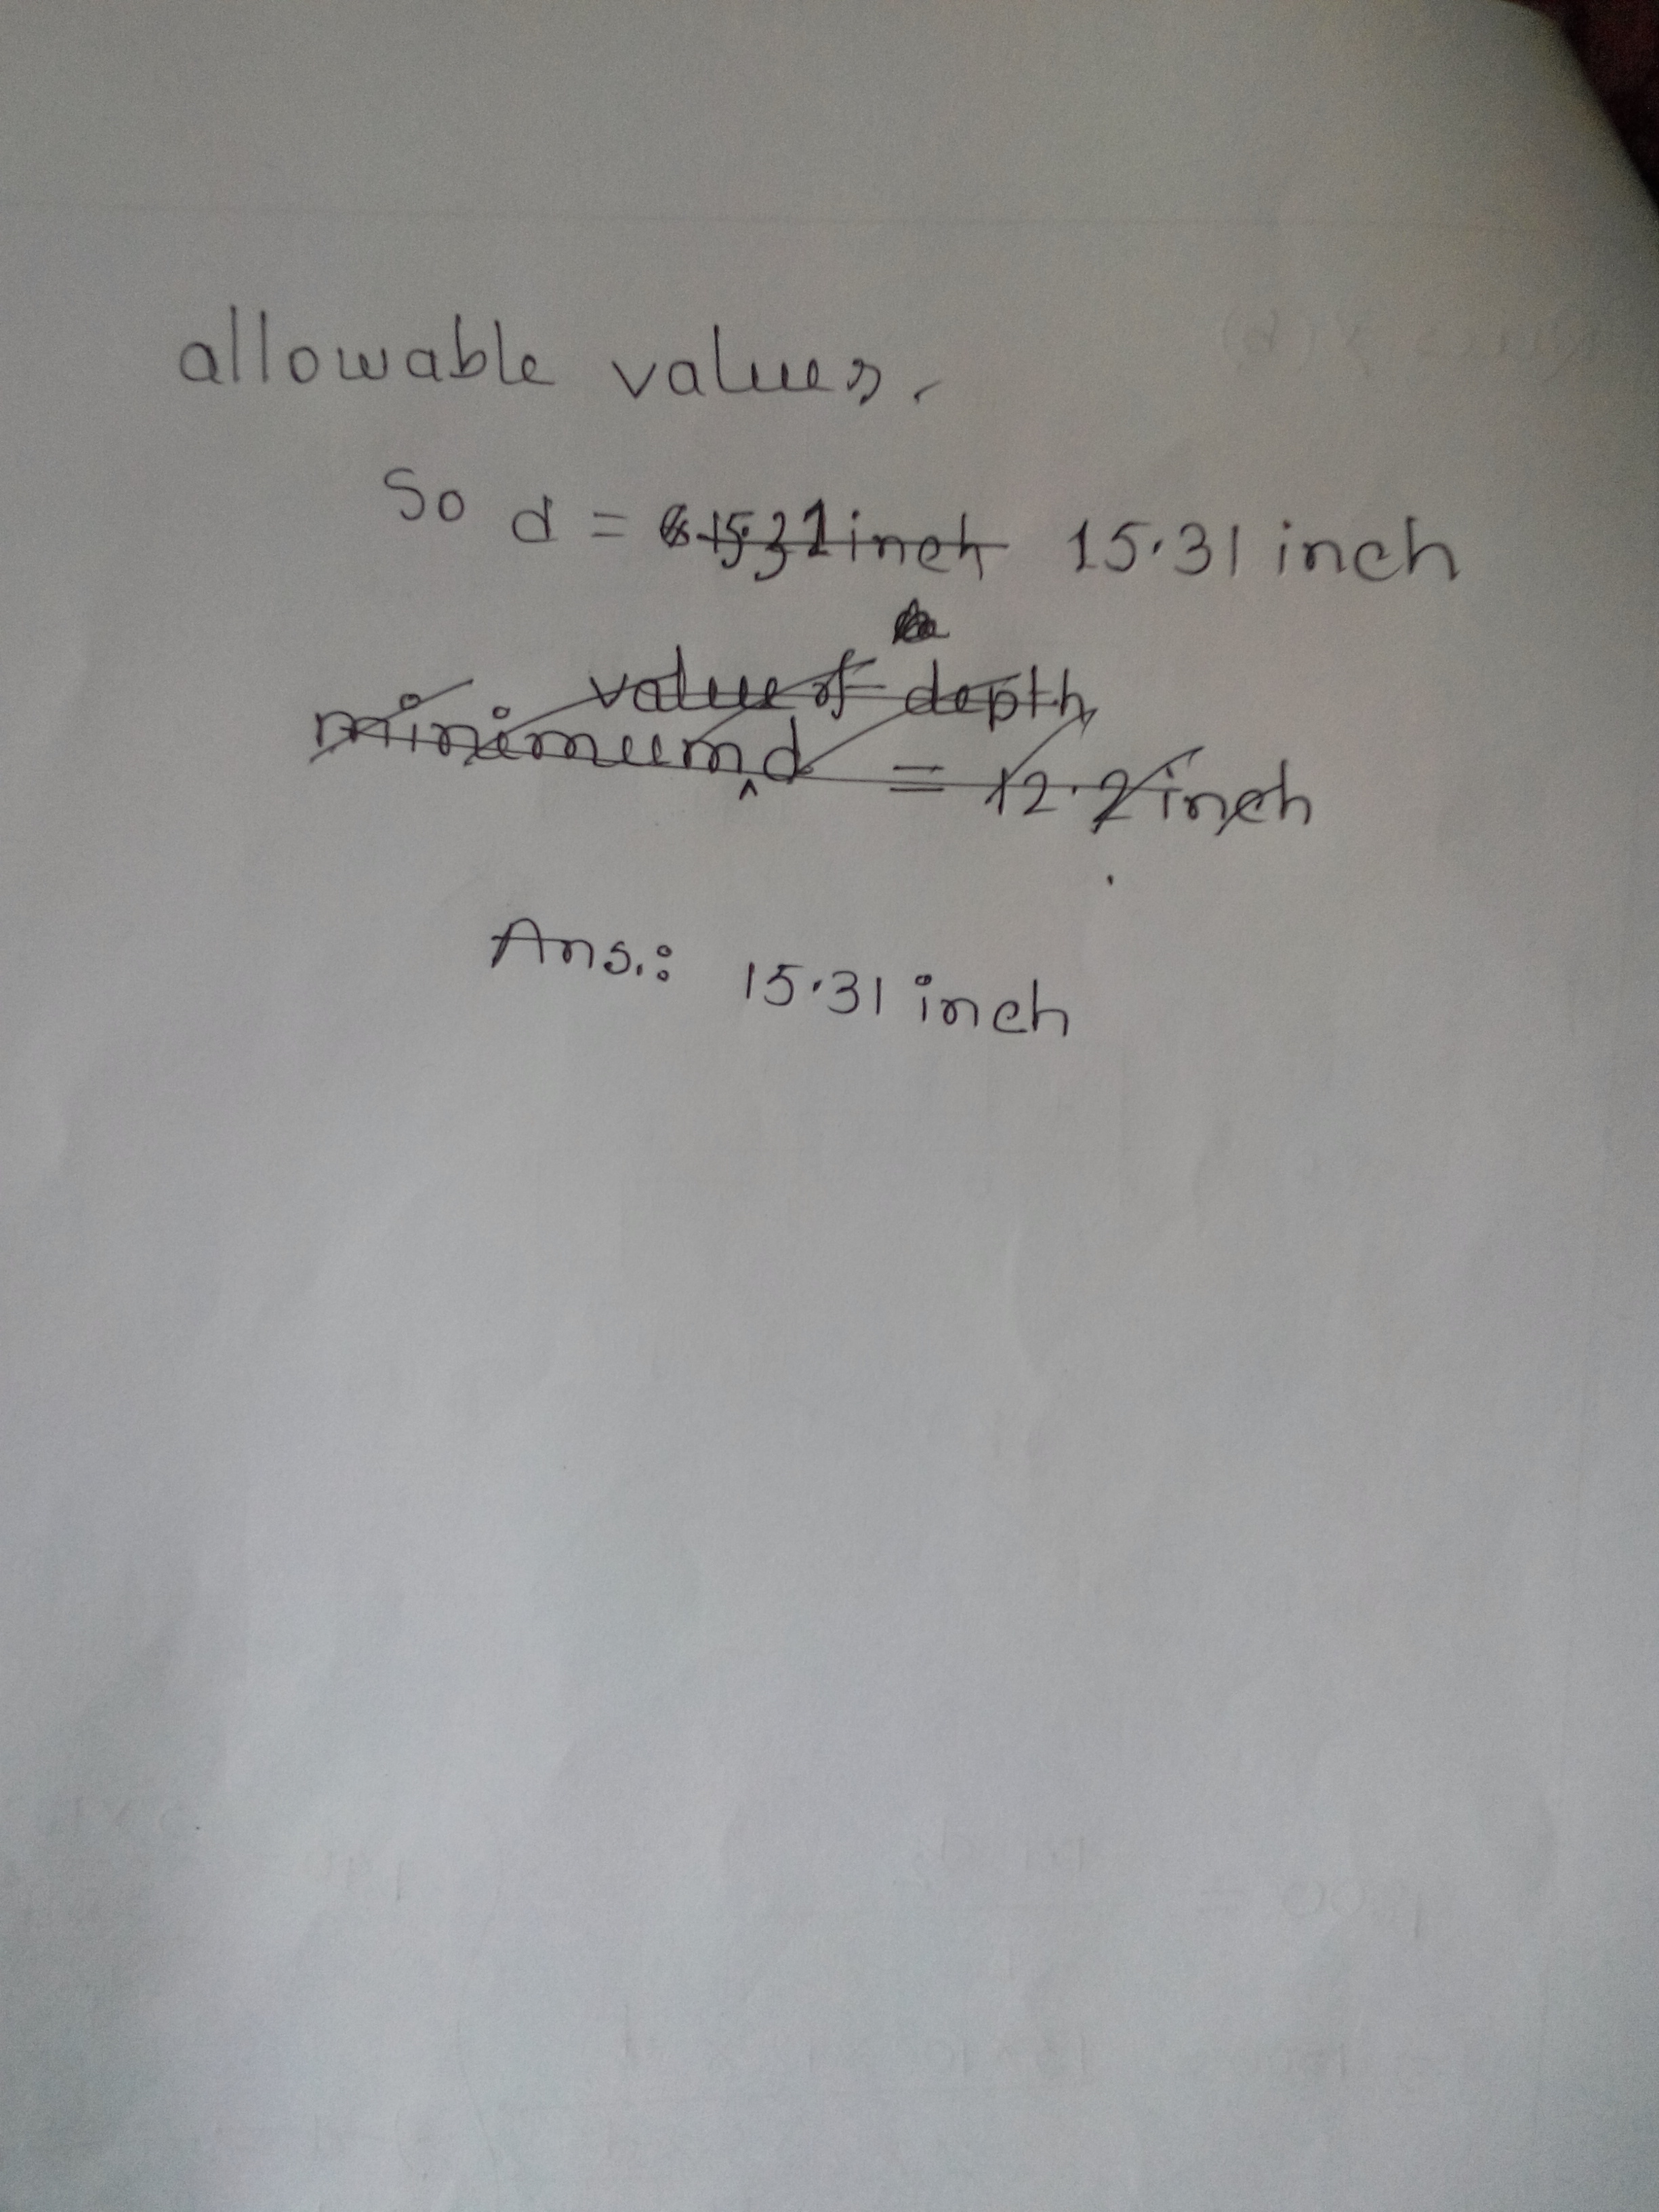 allowable values.
So d = 15.31 inch 15.31 inch
value of depth
minimum d = 12.2 inch
Ans.: 15.31 inch